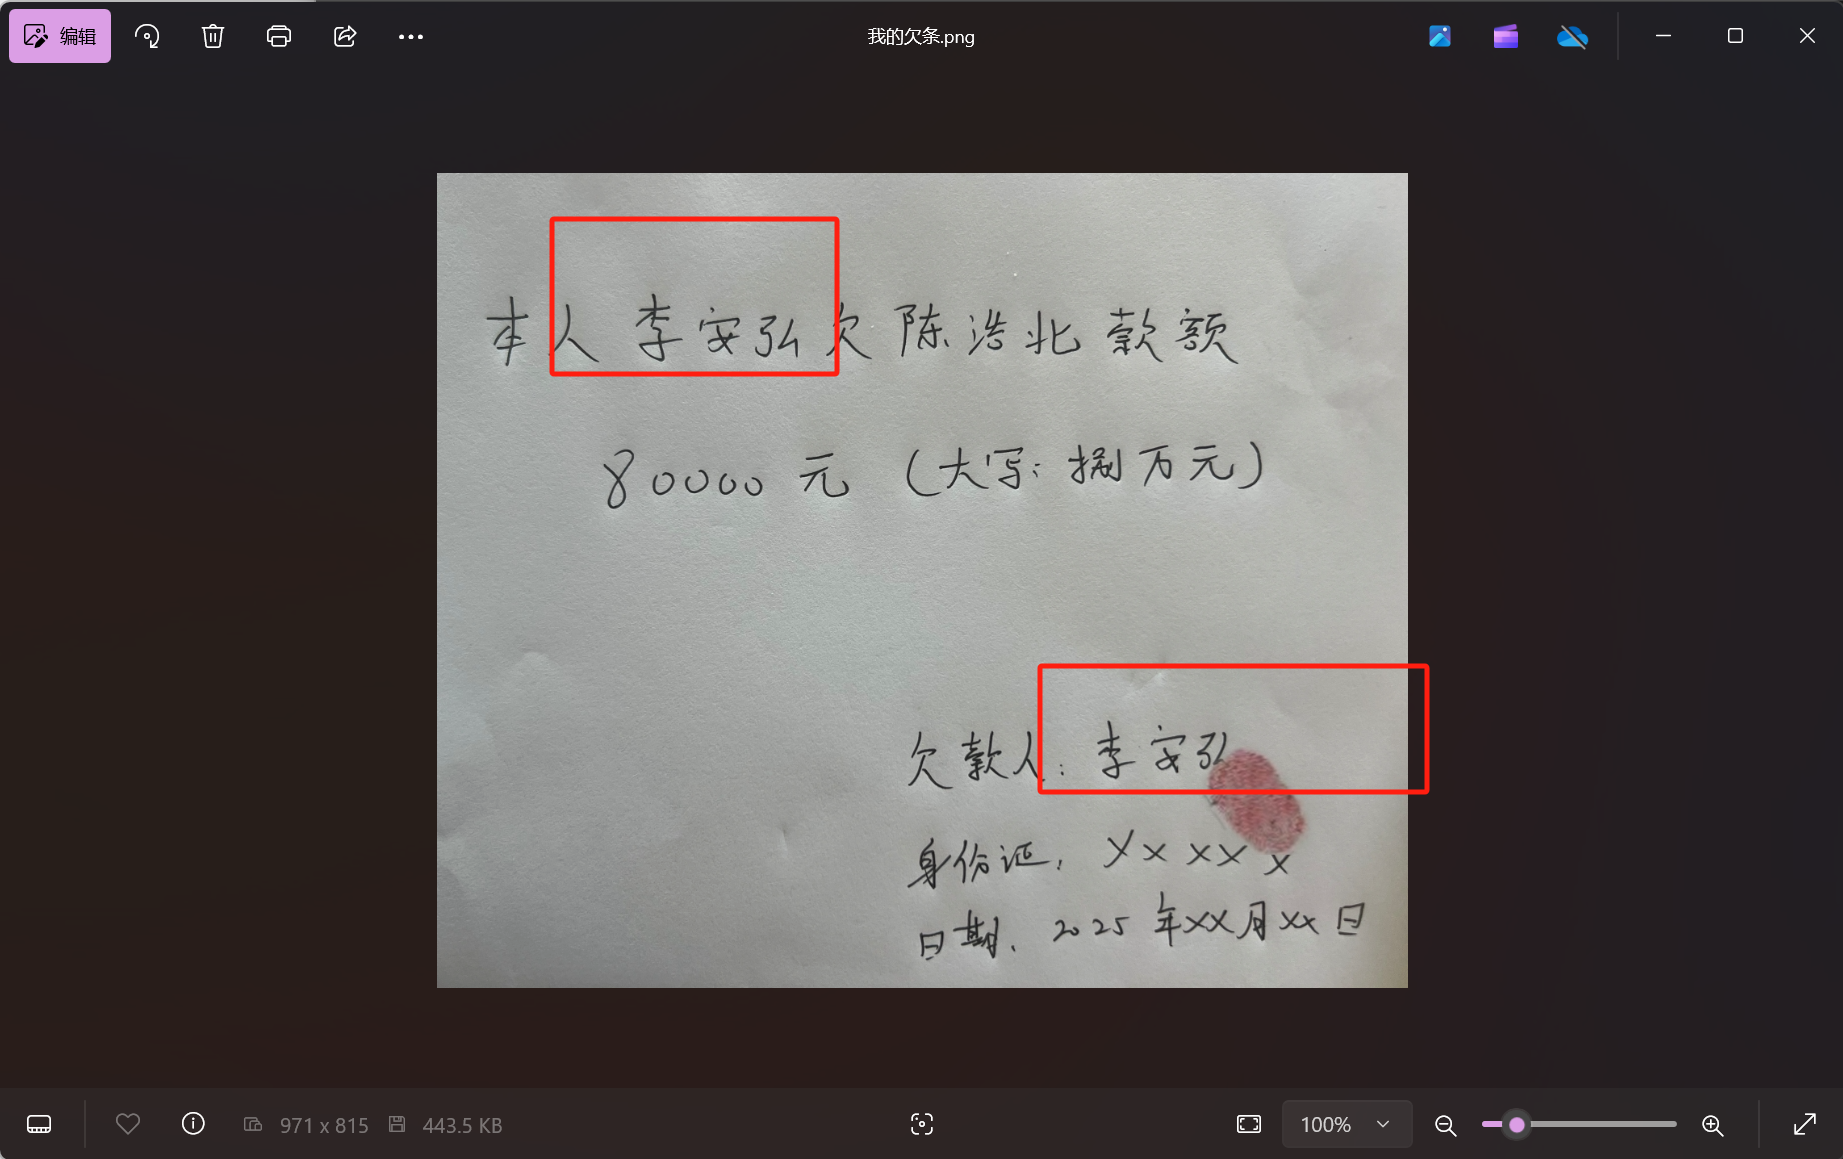 编辑
我的欠条.png
本人李安弘欠陈浩北款额
80000元（大写：捌万元）
欠款人：李安弘
身份证：XXXXX
日期：2025年XX月XX日
971 x 815
443.5 KB
100%